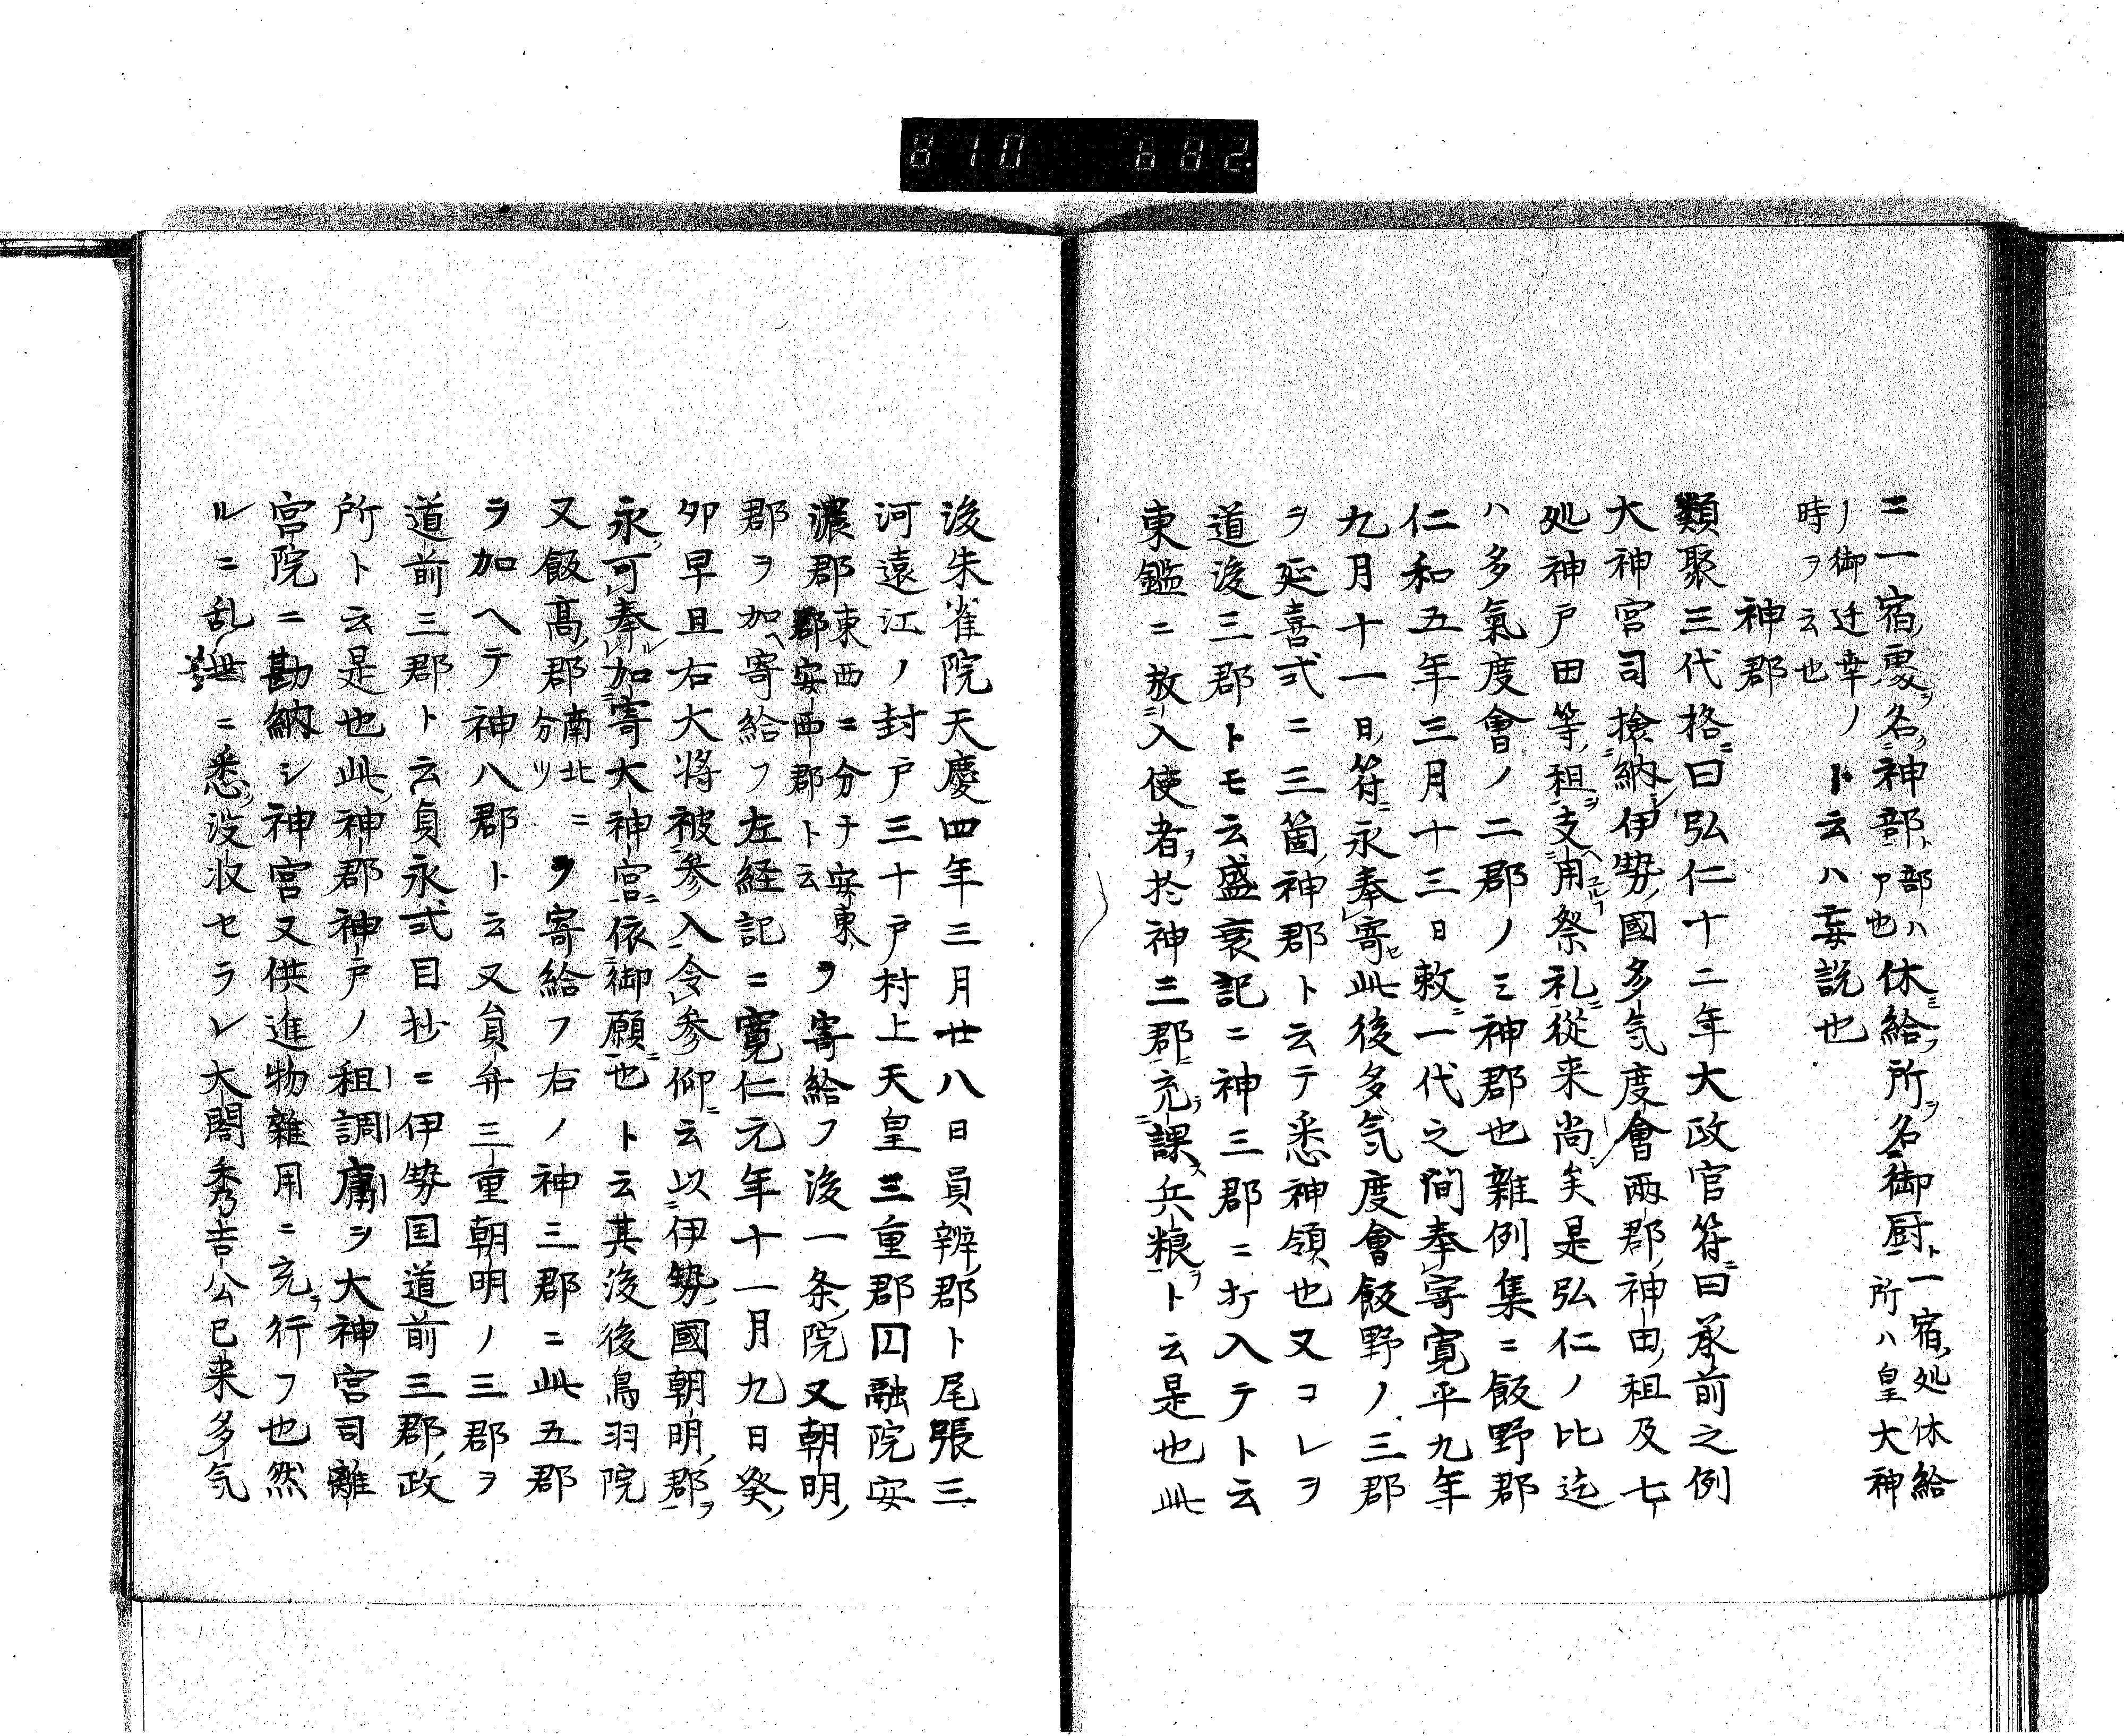 810 682
ニ一宿㽵名神部ト部ハ卩也休給所名御厨ト一宿処休給
一所ハ皇大神
ノ御迁幸ノ時ヲ云也ト云ハ妄説也
神郡
類聚三代格曰弘仁十二年大政官符曰承前之例
大神宮司撿納伊勢國多気度會兩郡神田租及七
処神戸田等租支用祭礼從来尚矣是弘仁ノ比迄
ハ多氣度會ノ二郡ノミ神郡也雜例集ニ飯野郡
仁和五年三月十三日敕一代之间奉寄寛平九年
九月十一日符永奉寄此後多気度會飯野ノ三郡
ヲ延喜式ニ三箇神郡ト云テ悉神領也又コレヲ
道後三郡トモ云盛衰記ニ神三郡ニ打入テト云
東鑑ニ放入使者於神三郡充課兵粮ト云是也此
後朱雀院天慶四年三月廿八日員辨郡ト尾張三
河遠江ノ封戸三十戸村上天皇三重郡囗融院安
濃郡東西ニ分チ安東郡安西郡ト云ヲ寄給フ後一条院又朝明
郡ヲ加ヘ寄給フ左経記ニ寛仁元年十一月九日癸
卯早旦右大将被参入令参仰云以伊勢國朝明郡
永可奉加寄大神宮依御願也ト云其後後鳥羽院
又飯高郡南北ニ分ツヲ寄給フ右ノ神三郡ニ此五郡
ヲ加ヘテ神八郡ト云又員弁三重朝明ノ三郡ヲ
道前三郡ト云貞永式目抄ニ伊勢国道前三郡政
所ト云是也此神郡神戸ノ租調庸ヲ大神宮司離
宮院ニ勘納シ神宮又供進物雜用ニ充行フ也然
ルニ乱世ニ悉没收セラレ太閤秀吉公已来多気